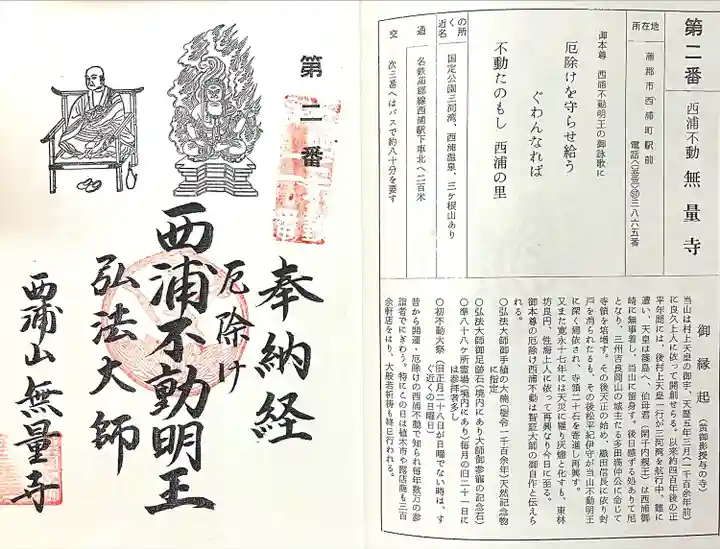 第二番
西浦不動 無量寺
所在地
蒲郡市西浦町駅前
三八六五番
御本尊 西浦不動明王の御詠歌に
厄除けを守らせ給う
ぐわんなれば
不動たのもし 西浦の里
近くの名所
国定公園三河湾、西浦温泉、三ケ根山あり
交通
名鉄蒲郡線西浦駅下車北へ二百米
次三番へはバスで約八十分を要す
御縁起
当山は村上天皇の御宇、天暦五年三月(一千百余年前)
に良久上人に依って開創せらる。以来約四百年後の正
平年間には、後村上天皇一行が三河湾を航行中、難に
遭い、天皇は篠島へ、伯母君(開千内親王)は西浦御
崎に無事着し、当山に留身す。後日感ずる処ありて尼
となり、三州吉良岡山の城主たる多田満仲公に命じて
寺領を培増す。その後天正の始め、織田信長に依り封
戸を消られたるも、その後松平紀伊守が当山不動明王
に深く帰依され、寺領二十石を寄進し再興す。
又また寛永十七年には天災に罹り灰燼と化すも、東林
坊良円、性海上人に依って再興なり今日に至る。
御本尊の厄除け西浦不動は智証大師の御自作と伝えら
れる。
○弘法大師御手植の大楠(樹令一千百余年)天然記念物
に指定
○弘法大師御足跡石(境内にあり大師御参籠の記念石)
○準八十八ヶ所霊場(境内にあり)毎月の旧二十一日に
は参拝者多し
○初不動大祭(旧正月二十八日が日曜でない時は、す
ぐ近くの日曜日)
昔から開運・厄除けの西浦不動で知られ毎年数万の参
詣者でにぎわう。特にこの日は植木市や露店商も三百
余軒店をはり、大般若祈祷も終日行われる。
第二番
奉納経
厄除け
西浦不動明王
弘法大師
西浦山 無量寺